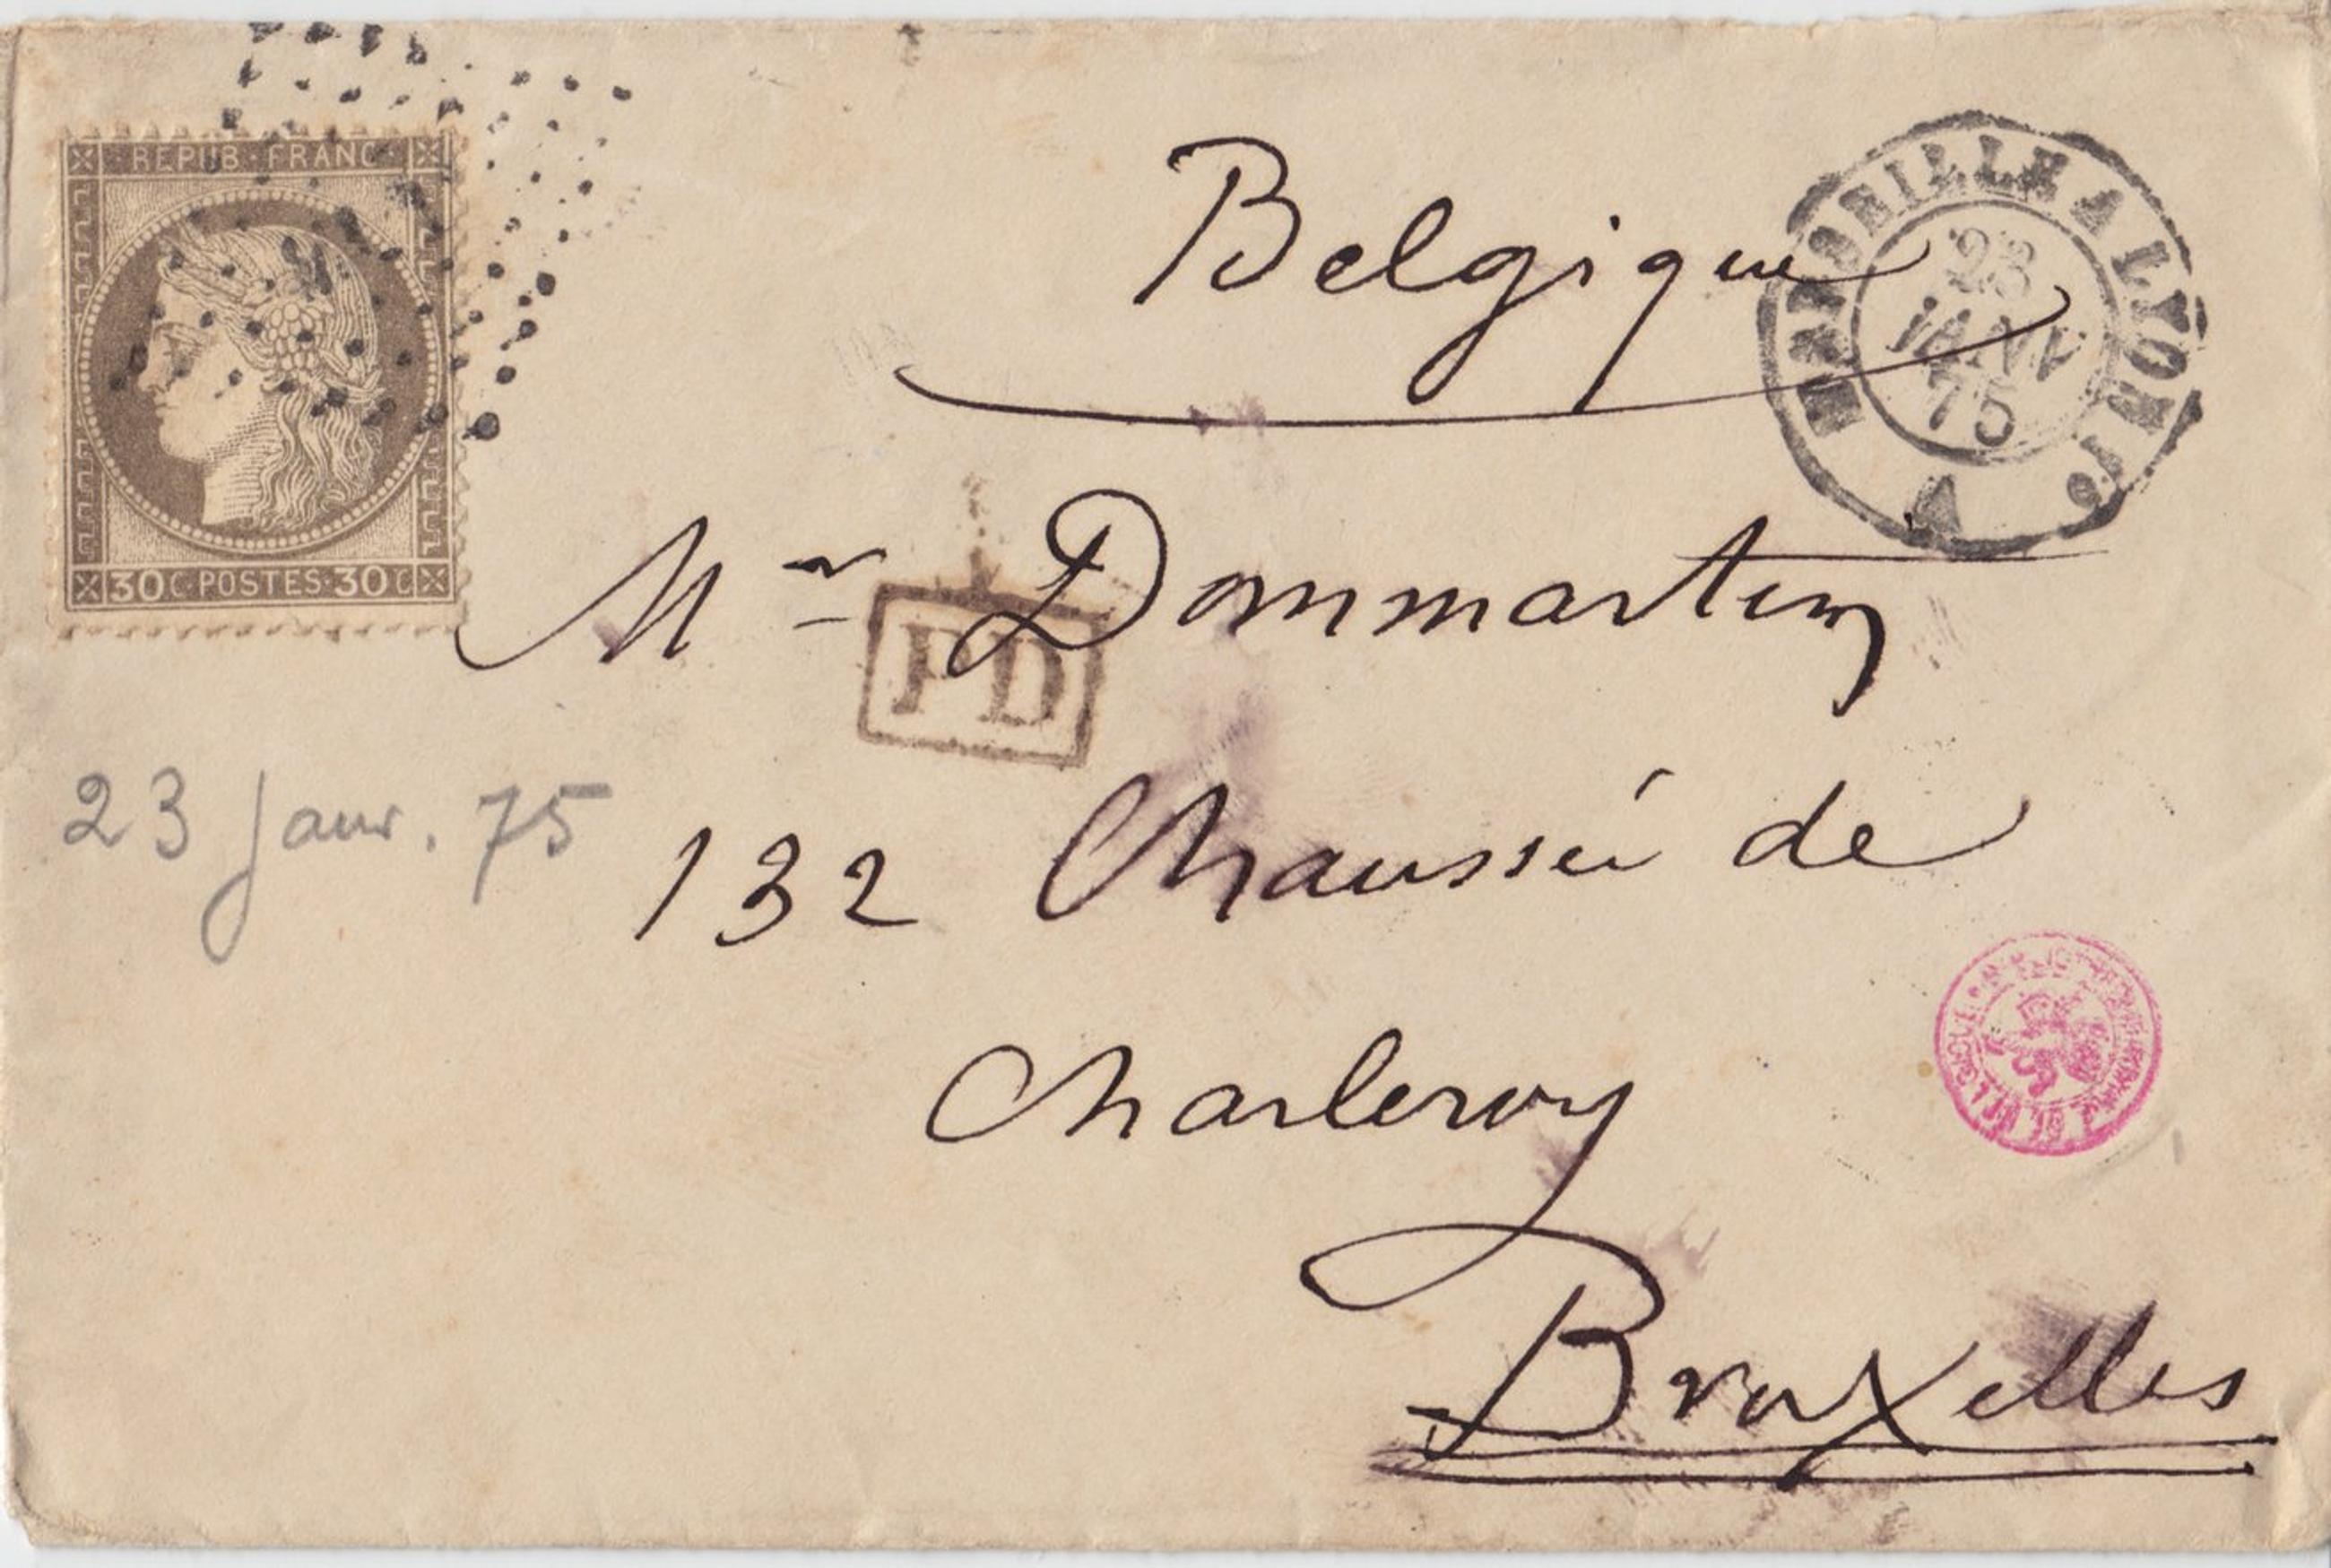 REPUB · FRANC ·
30 C · POSTES · 30 C
Belgique
MARSEILLE A LYON 1°
23
JANV
75
A
Mr Dommartin
PD
23 Janv. 75
132 Chaussée de
Charleroy
Bruxelles